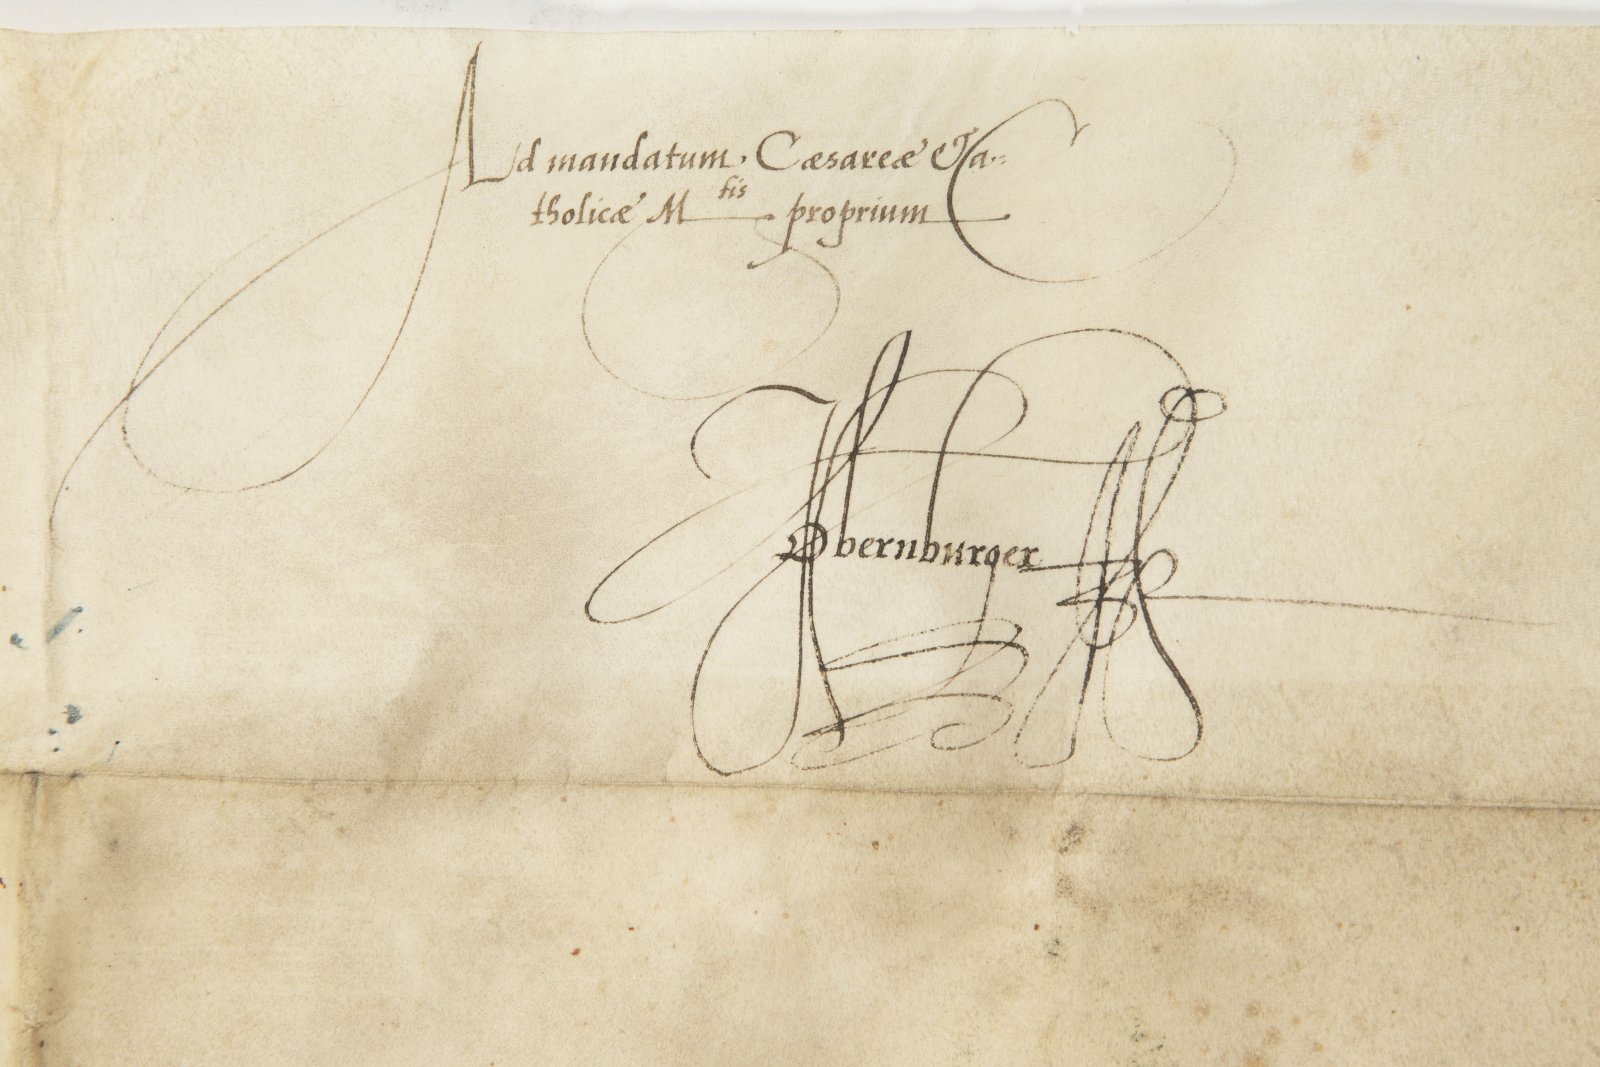 Ad mandatum. Cæsareæ & Ca-
tholicæ M^tis proprium
Obernburger